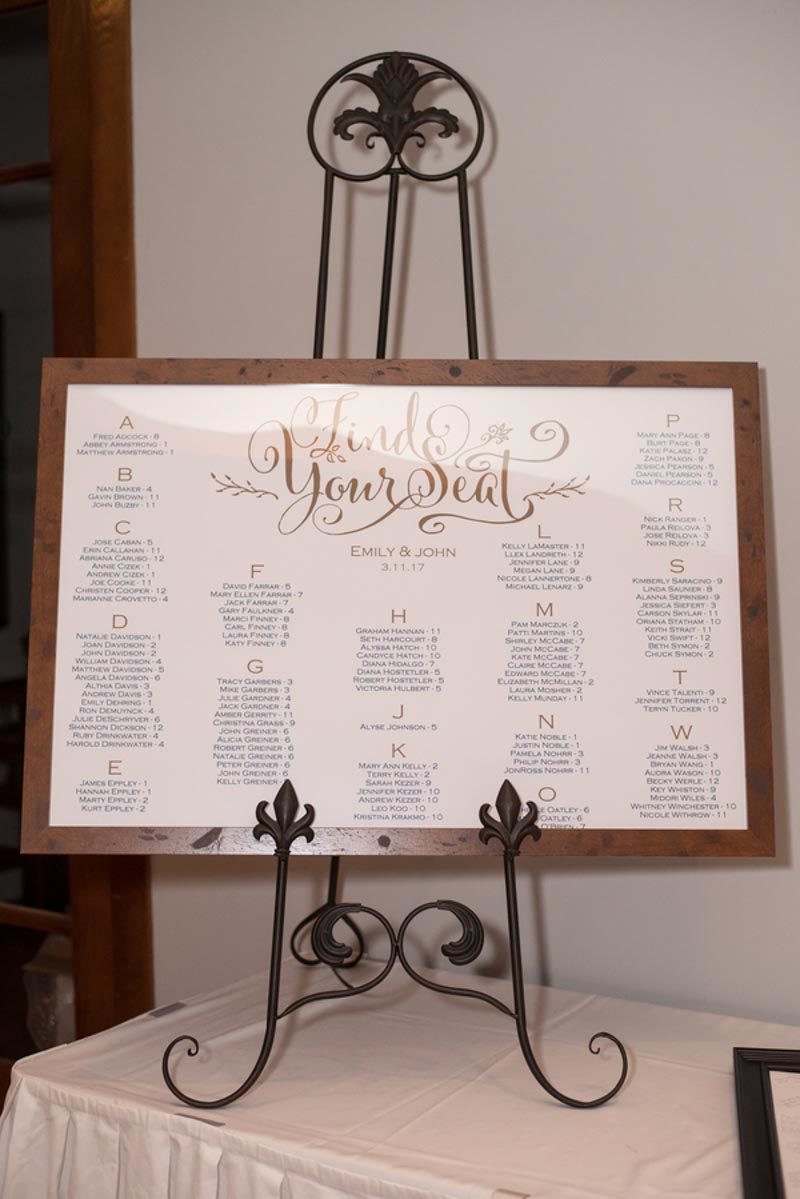 Find
Your Seat
Emily & John
3.11.17
A
Fred Adcock - 8
Abbey Armstrong - 1
Matthew Armstrong - 1
B
Nan Baker - 4
Gavin Brown - 11
John Buzby - 11
C
Jose Caban - 5
Erin Callahan - 11
Abriana Caruso - 12
Annie Cizek - 1
Andrew Cizek - 1
Joe Cooke - 11
Christen Cooper - 12
Marianne Crovetto - 4
D
Natalie Davidson - 1
Joan Davidson - 2
John Davidson - 2
William Davidson - 4
Matthew Davidson - 5
Angela Davidson - 6
Althia Davis - 3
Andrew Davis - 3
Emily Dehring - 1
Ron Demuynck - 4
Julie DeSchryver - 6
Shannon Dickson - 12
Ruby Drinkwater - 4
Harold Drinkwater - 4
E
James Eppley - 1
Hannah Eppley - 1
Marty Eppley - 2
Kurt Eppley - 2
F
David Farrar - 5
Mary Ellen Farrar - 7
Jack Farrar - 7
Gary Faulkner - 4
Marci Finney - 8
Carl Finney - 8
Laura Finney - 8
Katy Finney - 8
G
Tracy Garbers - 3
Mike Garbers - 3
Julie Gardner - 4
Jack Gardner - 4
Amber Gerrity - 11
Christina Grass - 9
John Greiner - 6
Alicia Greiner - 6
Robert Greiner - 6
Natalie Greiner - 6
Peter Greiner - 6
John Greiner - 6
Kelly Greiner - 
H
Graham Hannan - 11
Seth Harcourt - 8
Alyssa Hatch - 10
Candyce Hatch - 10
Diana Hidalgo - 7
Diana Hostetler - 5
Robert Hostetler - 5
Victoria Hulbert - 5
J
Alyse Johnson - 5
K
Mary Ann Kelly - 2
Terry Kelly - 2
Sarah Kezer - 9
Jennifer Kezer - 10
Andrew Kezer - 10
Leo Koo - 10
Kristina Krakmo - 10
L
Kelly LaMaster - 11
Llex Landreth - 12
Jennifer Lane - 9
Megan Lane - 9
Nicole Lannertone - 8
Michael Lenarz - 9
M
Pam Marczuk - 2
Patti Martins - 10
Shirley McCabe - 7
John McCabe - 7
Kate McCabe - 7
Claire McCabe - 7
Edward McCabe - 7
Elizabeth McMillan - 2
Laura Mosher - 2
Kelly Munday - 11
N
Katie Noble - 1
Justin Noble - 1
Pamela Nohrr - 3
Philip Nohrr - 3
JonRoss Nohrr - 11
O
Oatley - 6
Oatley - 6
O'Brien - 7
P
Mary Ann Page - 8
Burt Page - 8
Katie Palasz - 12
Zach Paxon - 9
Jessica Pearson - 5
Daniel Pearson - 5
Dana Procaccini - 12
R
Nick Ranger - 1
Paula Reilova - 3
Jose Reilova - 3
Nikki Rudy - 12
S
Kimberly Saracino - 9
Linda Saunier - 8
Alanna Seprinski - 9
Jessica Siefert - 3
Carson Skylar - 11
Oriana Statham - 10
Keith Strait - 11
Vicki Swift - 12
Beth Symon - 2
Chuck Symon - 2
T
Vince Talenti - 9
Jennifer Torrent - 12
Teryn Tucker - 10
W
Jim Walsh - 3
Jeanne Walsh - 3
Bryan Wang - 1
Audra Wason - 10
Becky Werle - 12
Key Whiston - 9
Midori Wiles - 4
Whitney Winchester - 10
Nicole Withrow - 11